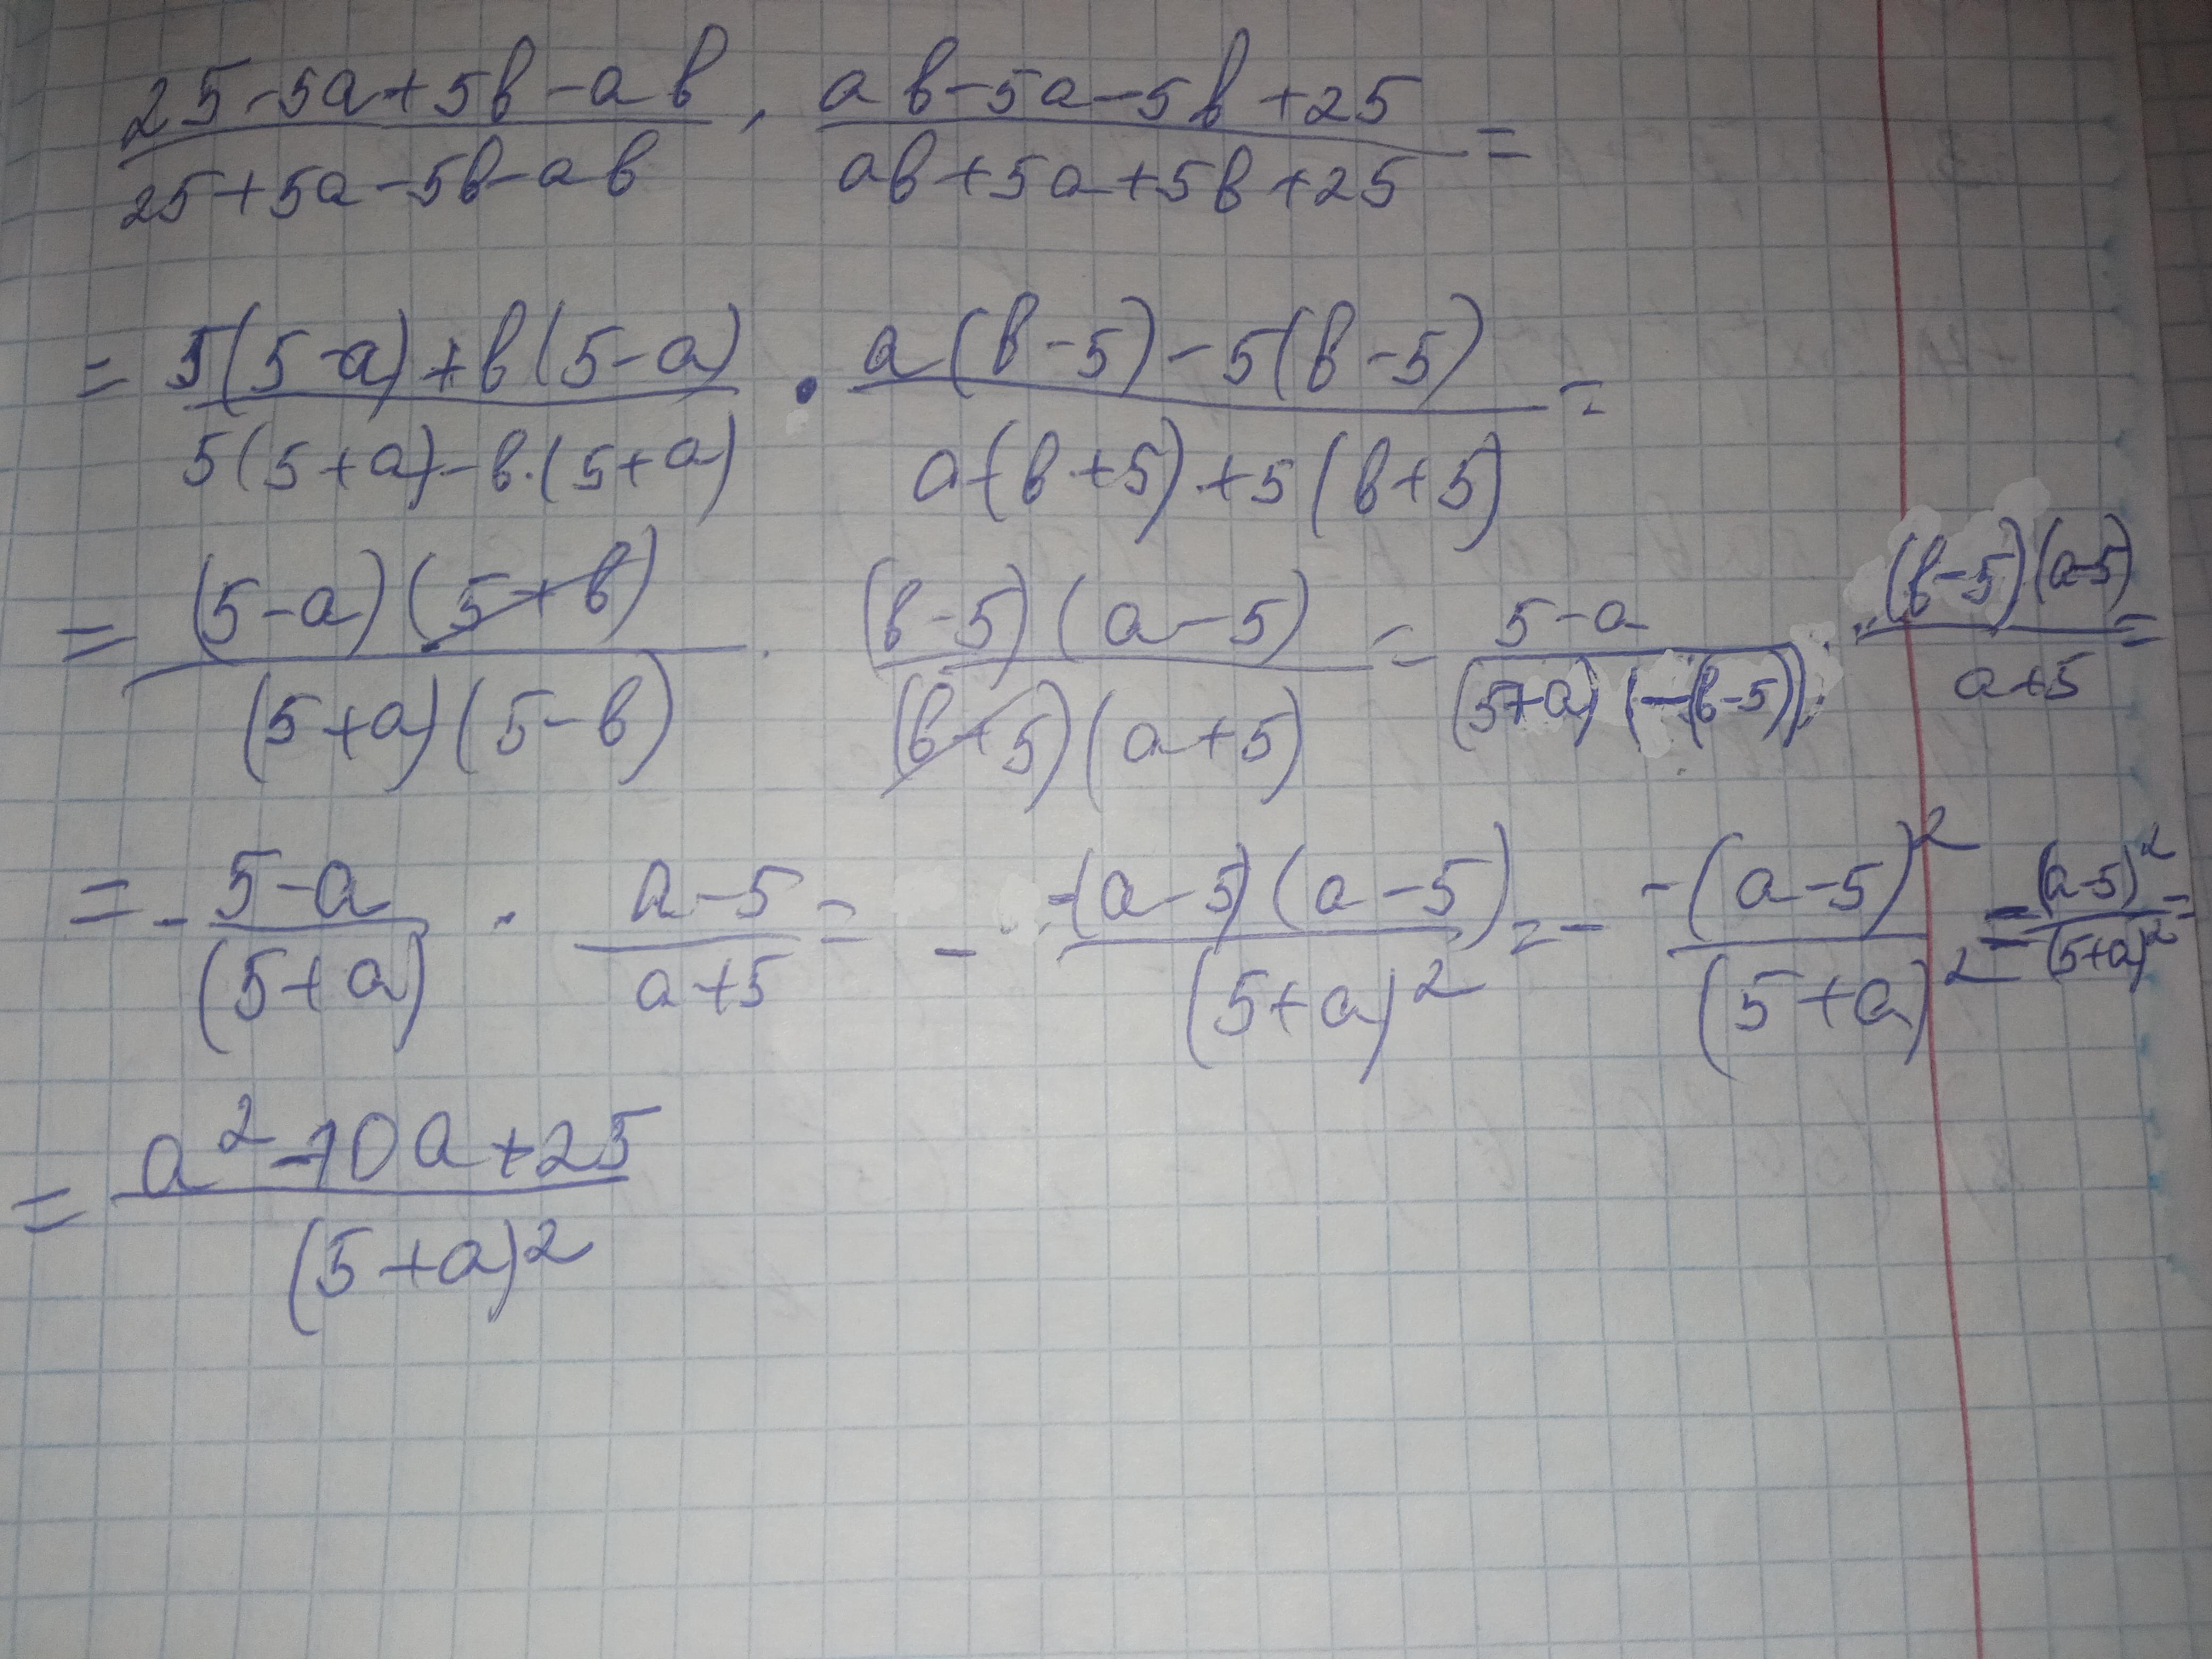 25-5a+5в-aв / 25+5a-5в-aв · aв-5a-5в+25 / aв+5a+5в+25 =
= 5(5-a)+в(5-a) / 5(5+a)-в·(5+a) · a(в-5)-5(в-5) / a(в+5)+5(в+5) =
= (5-a)(5+в) / (5+a)(5-в) · (в-5)(a-5) / (в+5)(a+5) = 5-a / (5+a)(-(в-5)) · (в-5)(a-5) / a+5 =
= - 5-a / (5+a) · a-5 / a+5 = - -(a-5)(a-5) / (5+a)² = - -(a-5)² / (5+a)² = (a-5)² / (5+a)² =
= a²-10a+25 / (5+a)²